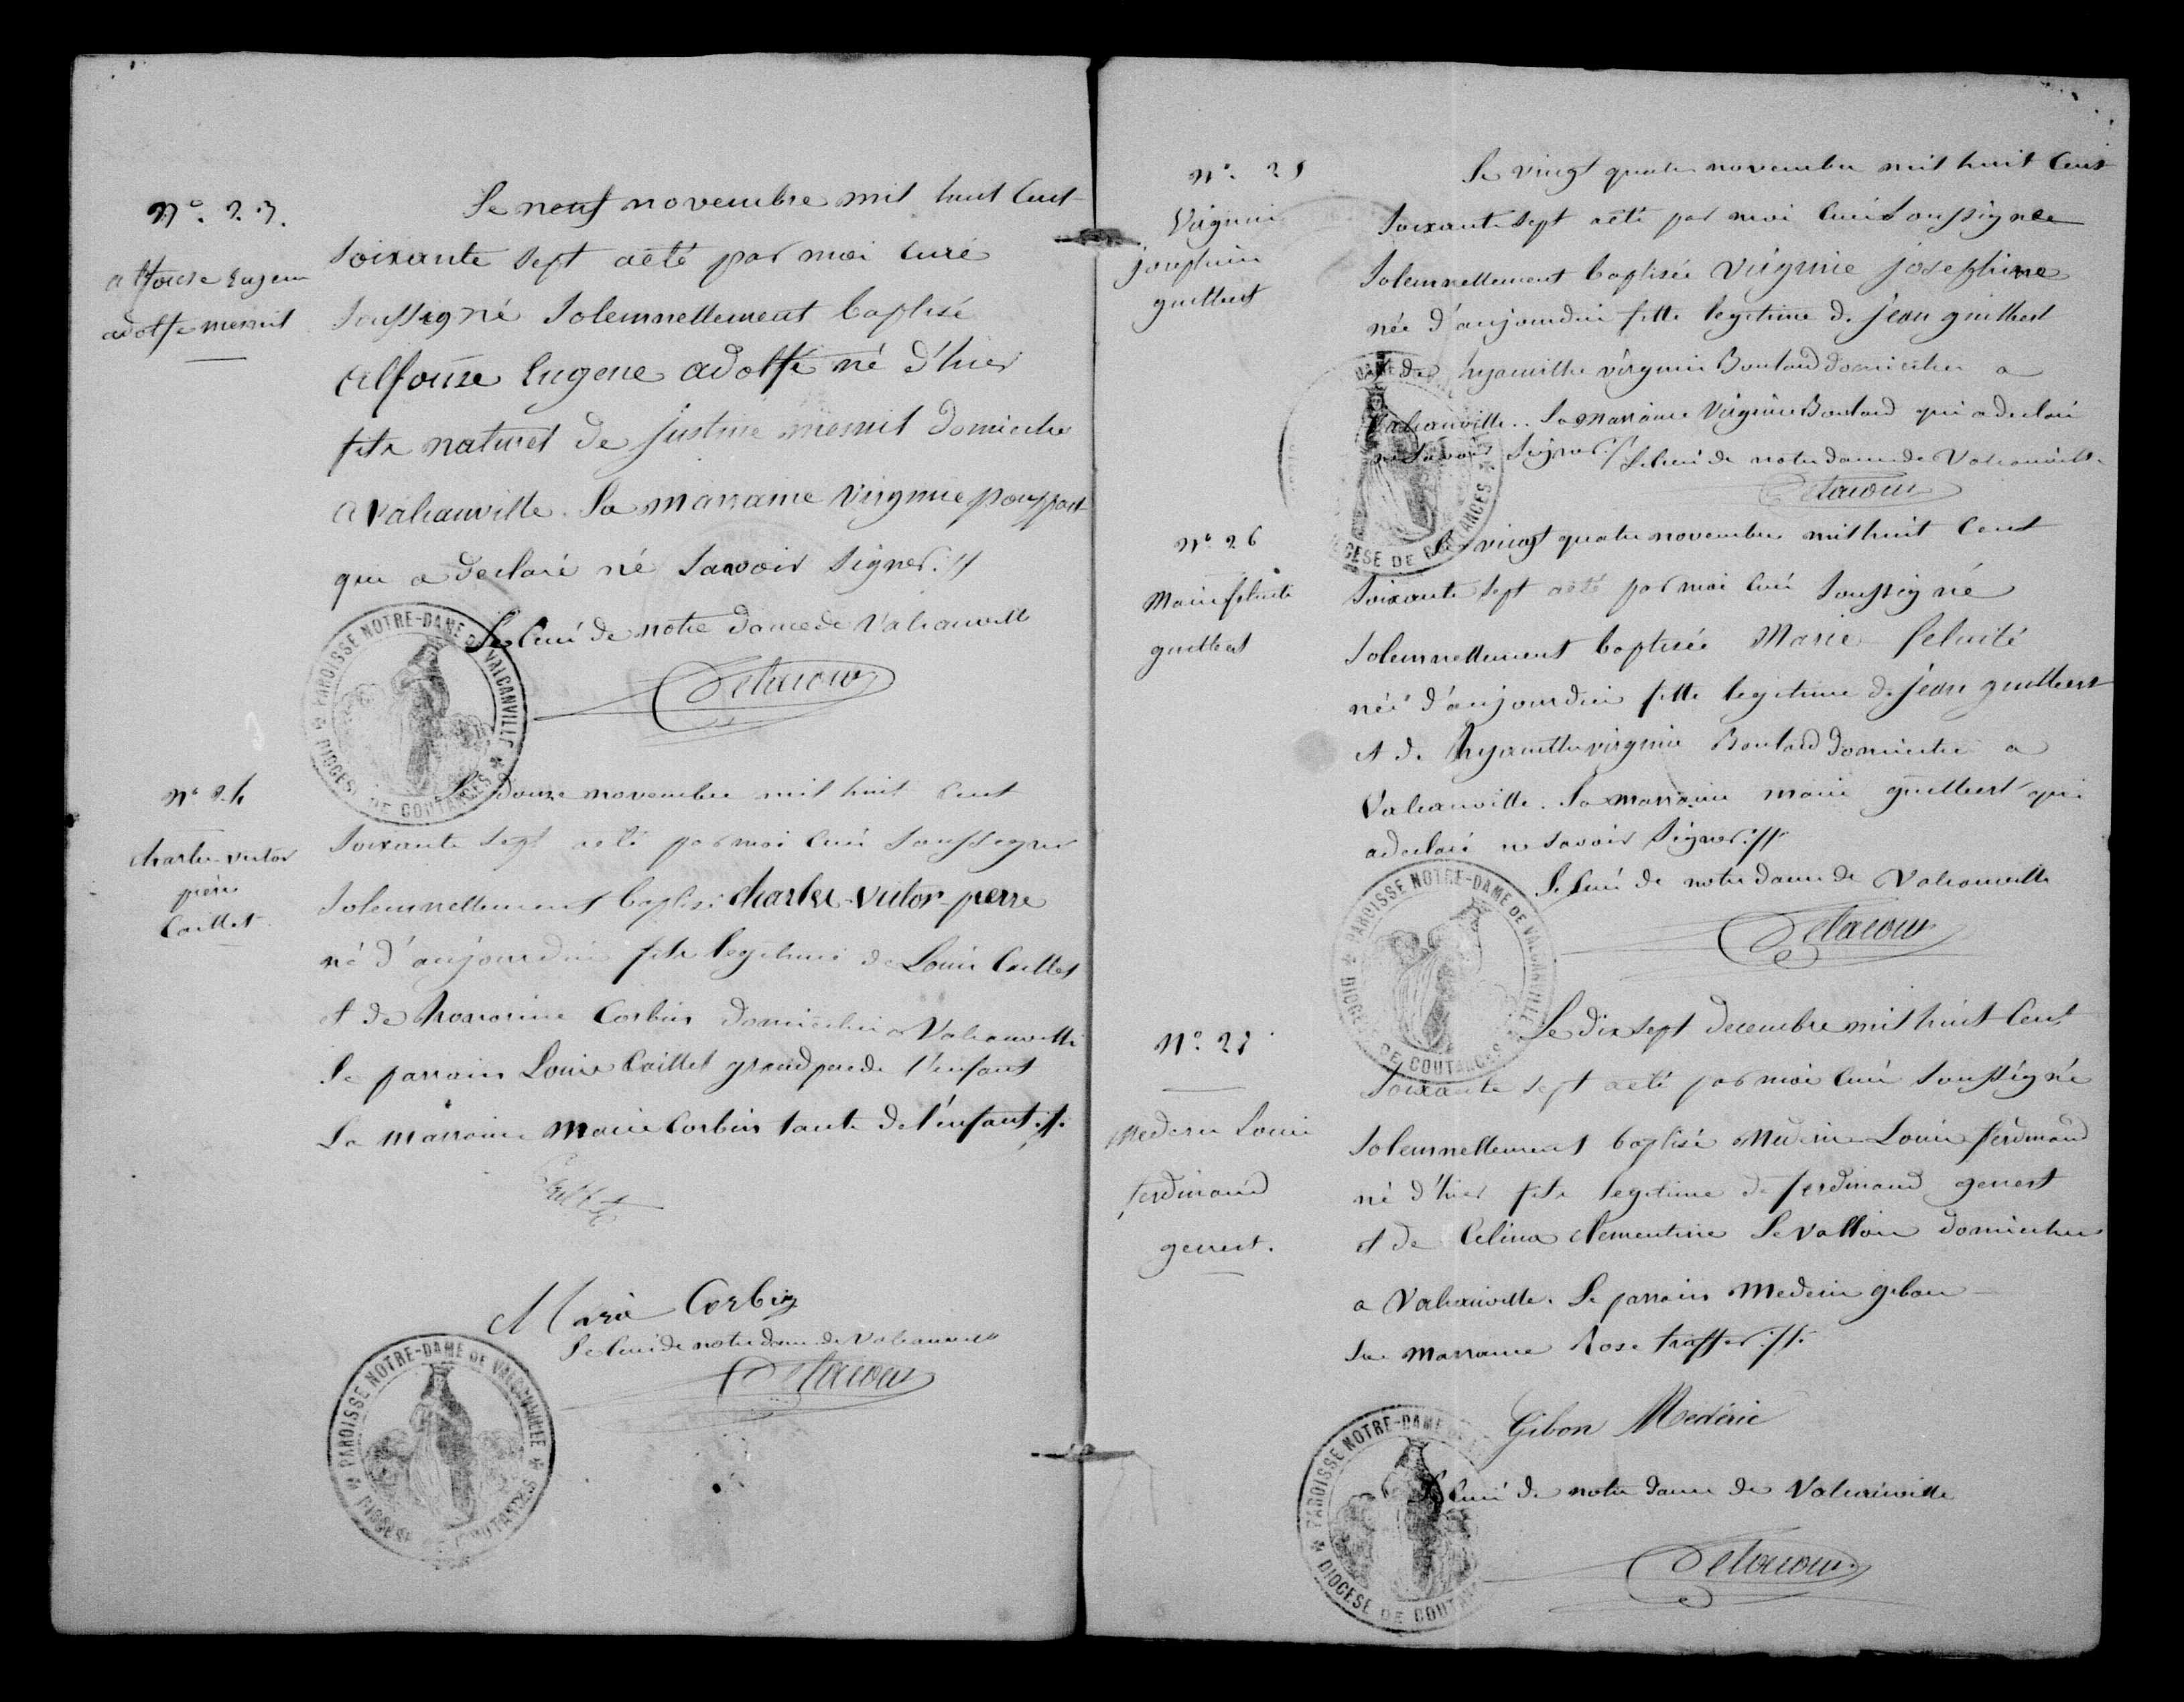 N° 23.
Alfonse Eugene
adolfe mesnil
Le neuf novembre mil huit Cent
Soixante Sept a été par moi Curé
Soussigné Solemnellement baptisé
Alfonse Eugene adolfe né d'hier
fils naturel de Justine mesnil domiciliée
a Valcanville. La marraine Virginie
qui a declaré né Savoir Signer.//
Le Curé de notre dame de Valcanville
Delacour
PAROISSE NOTRE-DAME DE VALCANVILLE
DIOCESE DE COUTANCES
N° 24
Charles-victor
pierre
Caillet
Le douze novembre mil huit Cent
Soixante Sept a été par moi Curé Soussigné
Solemnellement baptisé Charles-Victor-pierre
né d'aujourdui fils legitime de Louis Caillet
et de honorine Corbin domiciliés a Valcanville
Le parrain Louis Caillet grand pere de l'enfant
La Marraine Marie Corbin tante de l'enfant.//.
Caillet
Marie Corbin
Le Curé de notre dame de Valcanville
Delacour
PAROISSE NOTRE-DAME DE VALCANVILLE
DIOCESE DE COUTANCES
N° 25
Virginie
josephine
guilbert
Le vingt quatre novembre mil huit Cent
Soixante Sept a été par moi Curé Soussigné
Solemnellement baptisée Virginie josephine
née d'aujourdui fille legitime de jean guilbert
et de hyacinthe virginie Boulard domiciliés a
Valcanville.. La Marraine Virginie Boulard qui a declaré
ne Savoir Signer.// Le Curé de notre dame de Valcanville
Delacour
DIOCESE DE COUTANCES
N° 26
Marie félicité
guilbert
Le vingt quatre novembre mil huit Cent
Soixante Sept a été par moi Curé Soussigné
Solemnellement baptisée Marie felicité
née d'aujourdui fille legitime de jean guilbert
et de hyacinthe virginie Boulard domiciliés a
Valcanville. La marraine marie guilbert qui
a declaré ne Savoir Signer.//.
Le Curé de notre dame de Valcanville
Delacour
PAROISSE NOTRE-DAME DE VALCANVILLE
DIOCESE DE COUTANCES
N° 27
Mederic Louis
ferdinand
genest.
Le dix Sept decembre mil huit Cent
Soixante Sept a été par moi Curé Soussigné
Solemnellement baptisé Mederic Louis ferdinand
né d'hier fils legitime de ferdinand genest
et de Celina clementine Le Vallois domiciliés
a Valcanville. Le parrain Mederic gibon
La Marraine Rose.//.
Gibon Mederic
Le Curé de notre dame de Valcanville
Delacour
PAROISSE NOTRE-DAME DE
DIOCESE DE COUTANCES